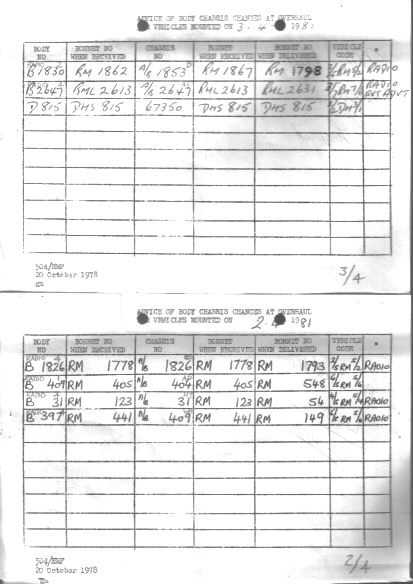 ADVICE OF BODY CHASSIS CHANGES AT OVERHAUL
VEHICLES MOUNTED ON 3. 4. 1981
BODY NO BONNET NO WHEN RECEIVED CHASSIS NO BONNET WHEN RECEIVED BONNET WHEN DELIVERED VEHICLE CODE *
B 1830 RM 1862 A/S 1853 RM 1867 RM 1798 RADIO
B 2647 RML 2613 A/S 2647 RML 2613 RML 2631 RADIO EXT ADVT
D 815 DMS 815 67350 DMS 815 DMS 815
504/EMF
20 October 1978
3/4
ADVICE OF BODY CHASSIS CHANGES AT OVERHAUL
VEHICLES MOUNTED ON 2. 4. 1981
BODY NO BONNET NO WHEN RECEIVED CHASSIS NO BONNET WHEN RECEIVED BONNET WHEN DELIVERED VEHICLE CODE *
RADIO
B 1826 RM 1778 A/S 1826 RM 1778 RM 1793 2/5 RM 5/2 RADIO
B 409 RM 405 A/S 404 RM 405 RM 548 RM 5/16
RADIO
B 31 RM 123 A/S 31 RM 123 RM 54 RM 5/14 RADIO
B 397 RM 441 A/S 409 RM 441 RM 149 RM 5/16
504/EMF
20 October 1978
2/4